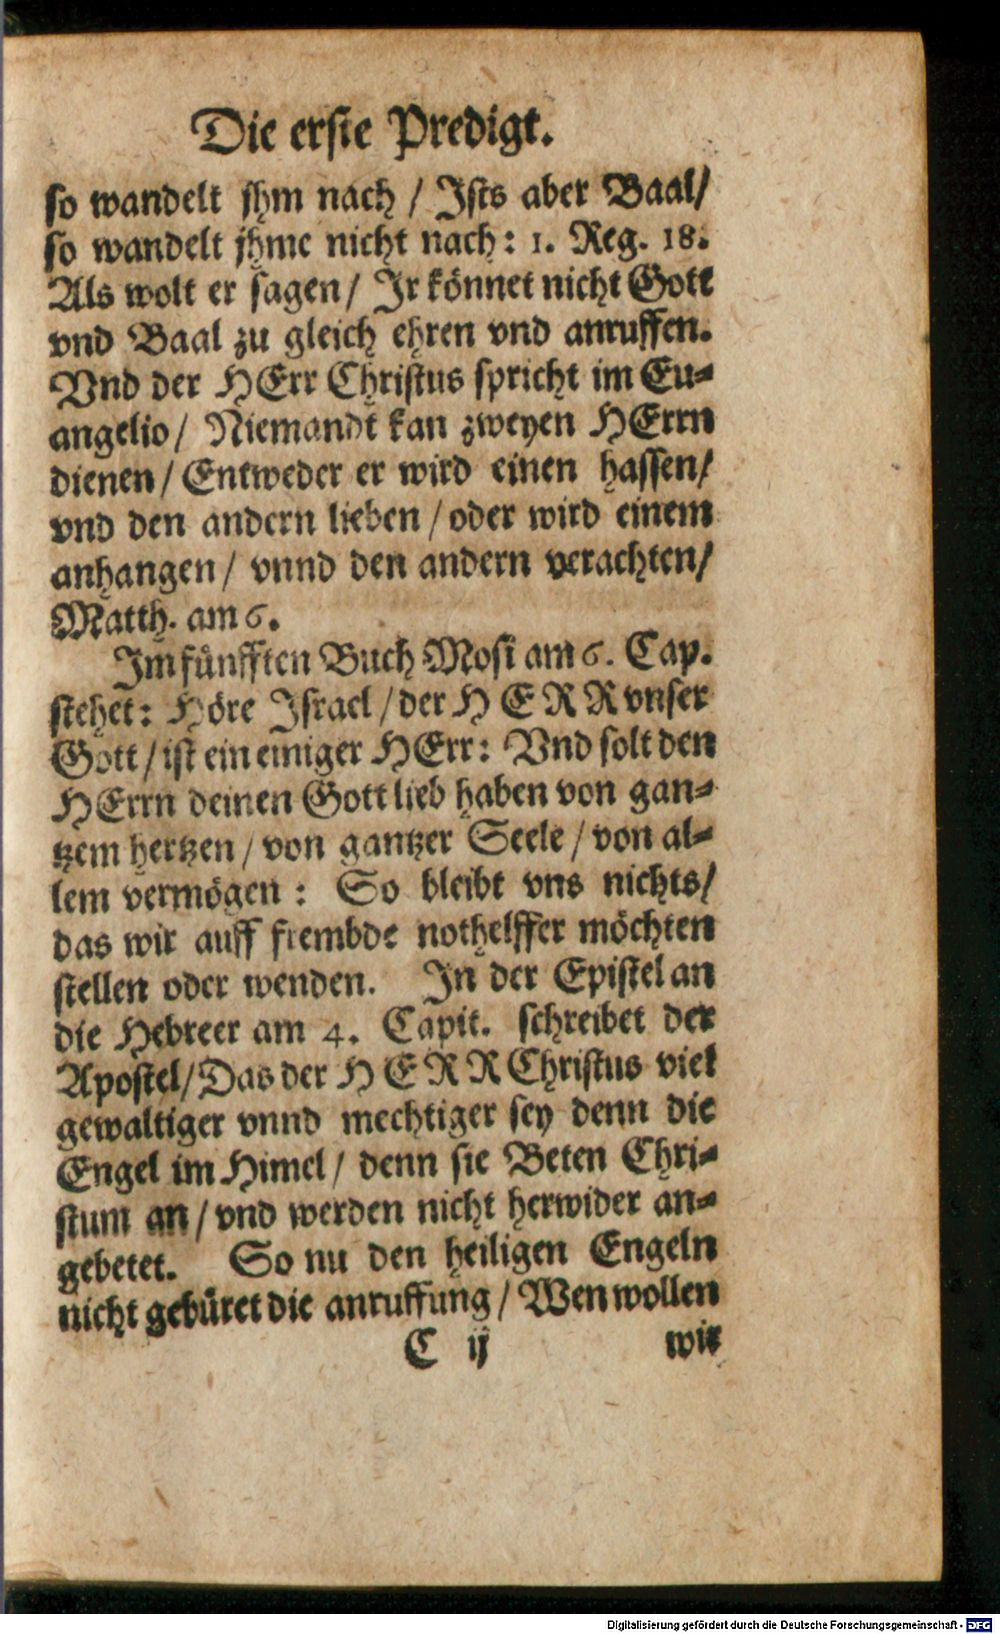 Die erste Predigt.
so wandelt jhm nach / Ists aber Baal/
so wandelt jhme nicht nach: 1. Reg. 18.
Als wolt er sagen/ Jr könnet nicht Gott
vnd Baal zu gleich ehren vnd anruffen.
Vnd der HErr Christus spricht im Eu-
angelio/ Niemandt kan zweyen HErrn
dienen/ Entweder er wird einen hassen/
vnd den andern lieben/ oder wird einem
anhangen/ vnnd den andern verachten/
Matth. am 6.
Im fünfften Buch Mosi am 6. Cap.
stehet: Höre Israel/ der HERR vnser
Gott/ ist ein einiger HErr: Vnd solt den
HErrn deinen Gott lieb haben von gan-
tzem hertzen/ von gantzer Seele/ von al-
lem vermögen: So bleibt vns nichts/
das wir auff frembde nothelffer möchten
stellen oder wenden. In der Epistel an
die Hebreer am 4. Capit. schreibet der
Apostel/ Das der HERR Christus viel
gewaltiger vnnd mechtiger sey denn die
Engel im Himel/ denn sie Beten Chri-
stum an/ vnd werden nicht herwider an-
gebetet. So nu den heiligen Engeln
nicht gebüret die anruffung/ Wen wollen
C ij wir
Digitalisierung gefördert durch die Deutsche Forschungsgemeinschaft - DFG